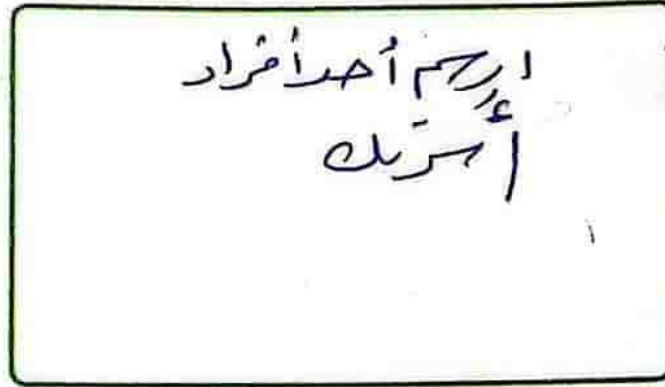 ارسم أحد أفراد
أسرتك